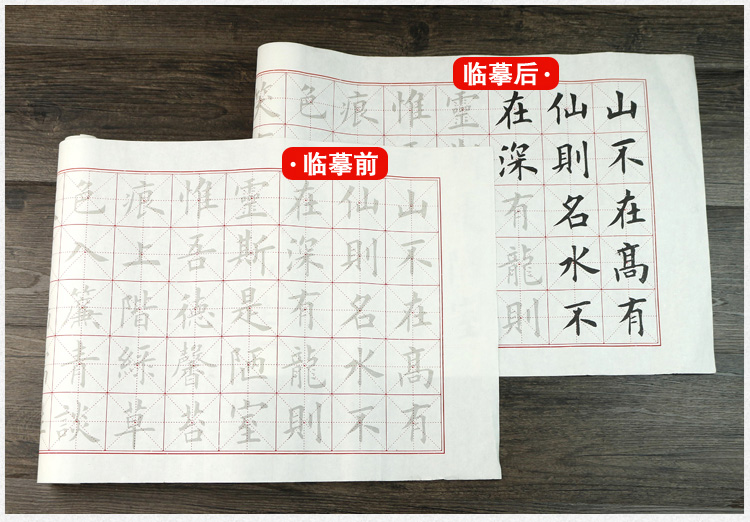 临摹后·
山不在髙有
仙則名水不
在深有龍則
靈
惟
痕
色
笑
·临摹前
山不在髙有
仙則名水不
在深有龍則
靈斯是陋室
惟吾德馨苔
痕上階綠草
色入簾青談